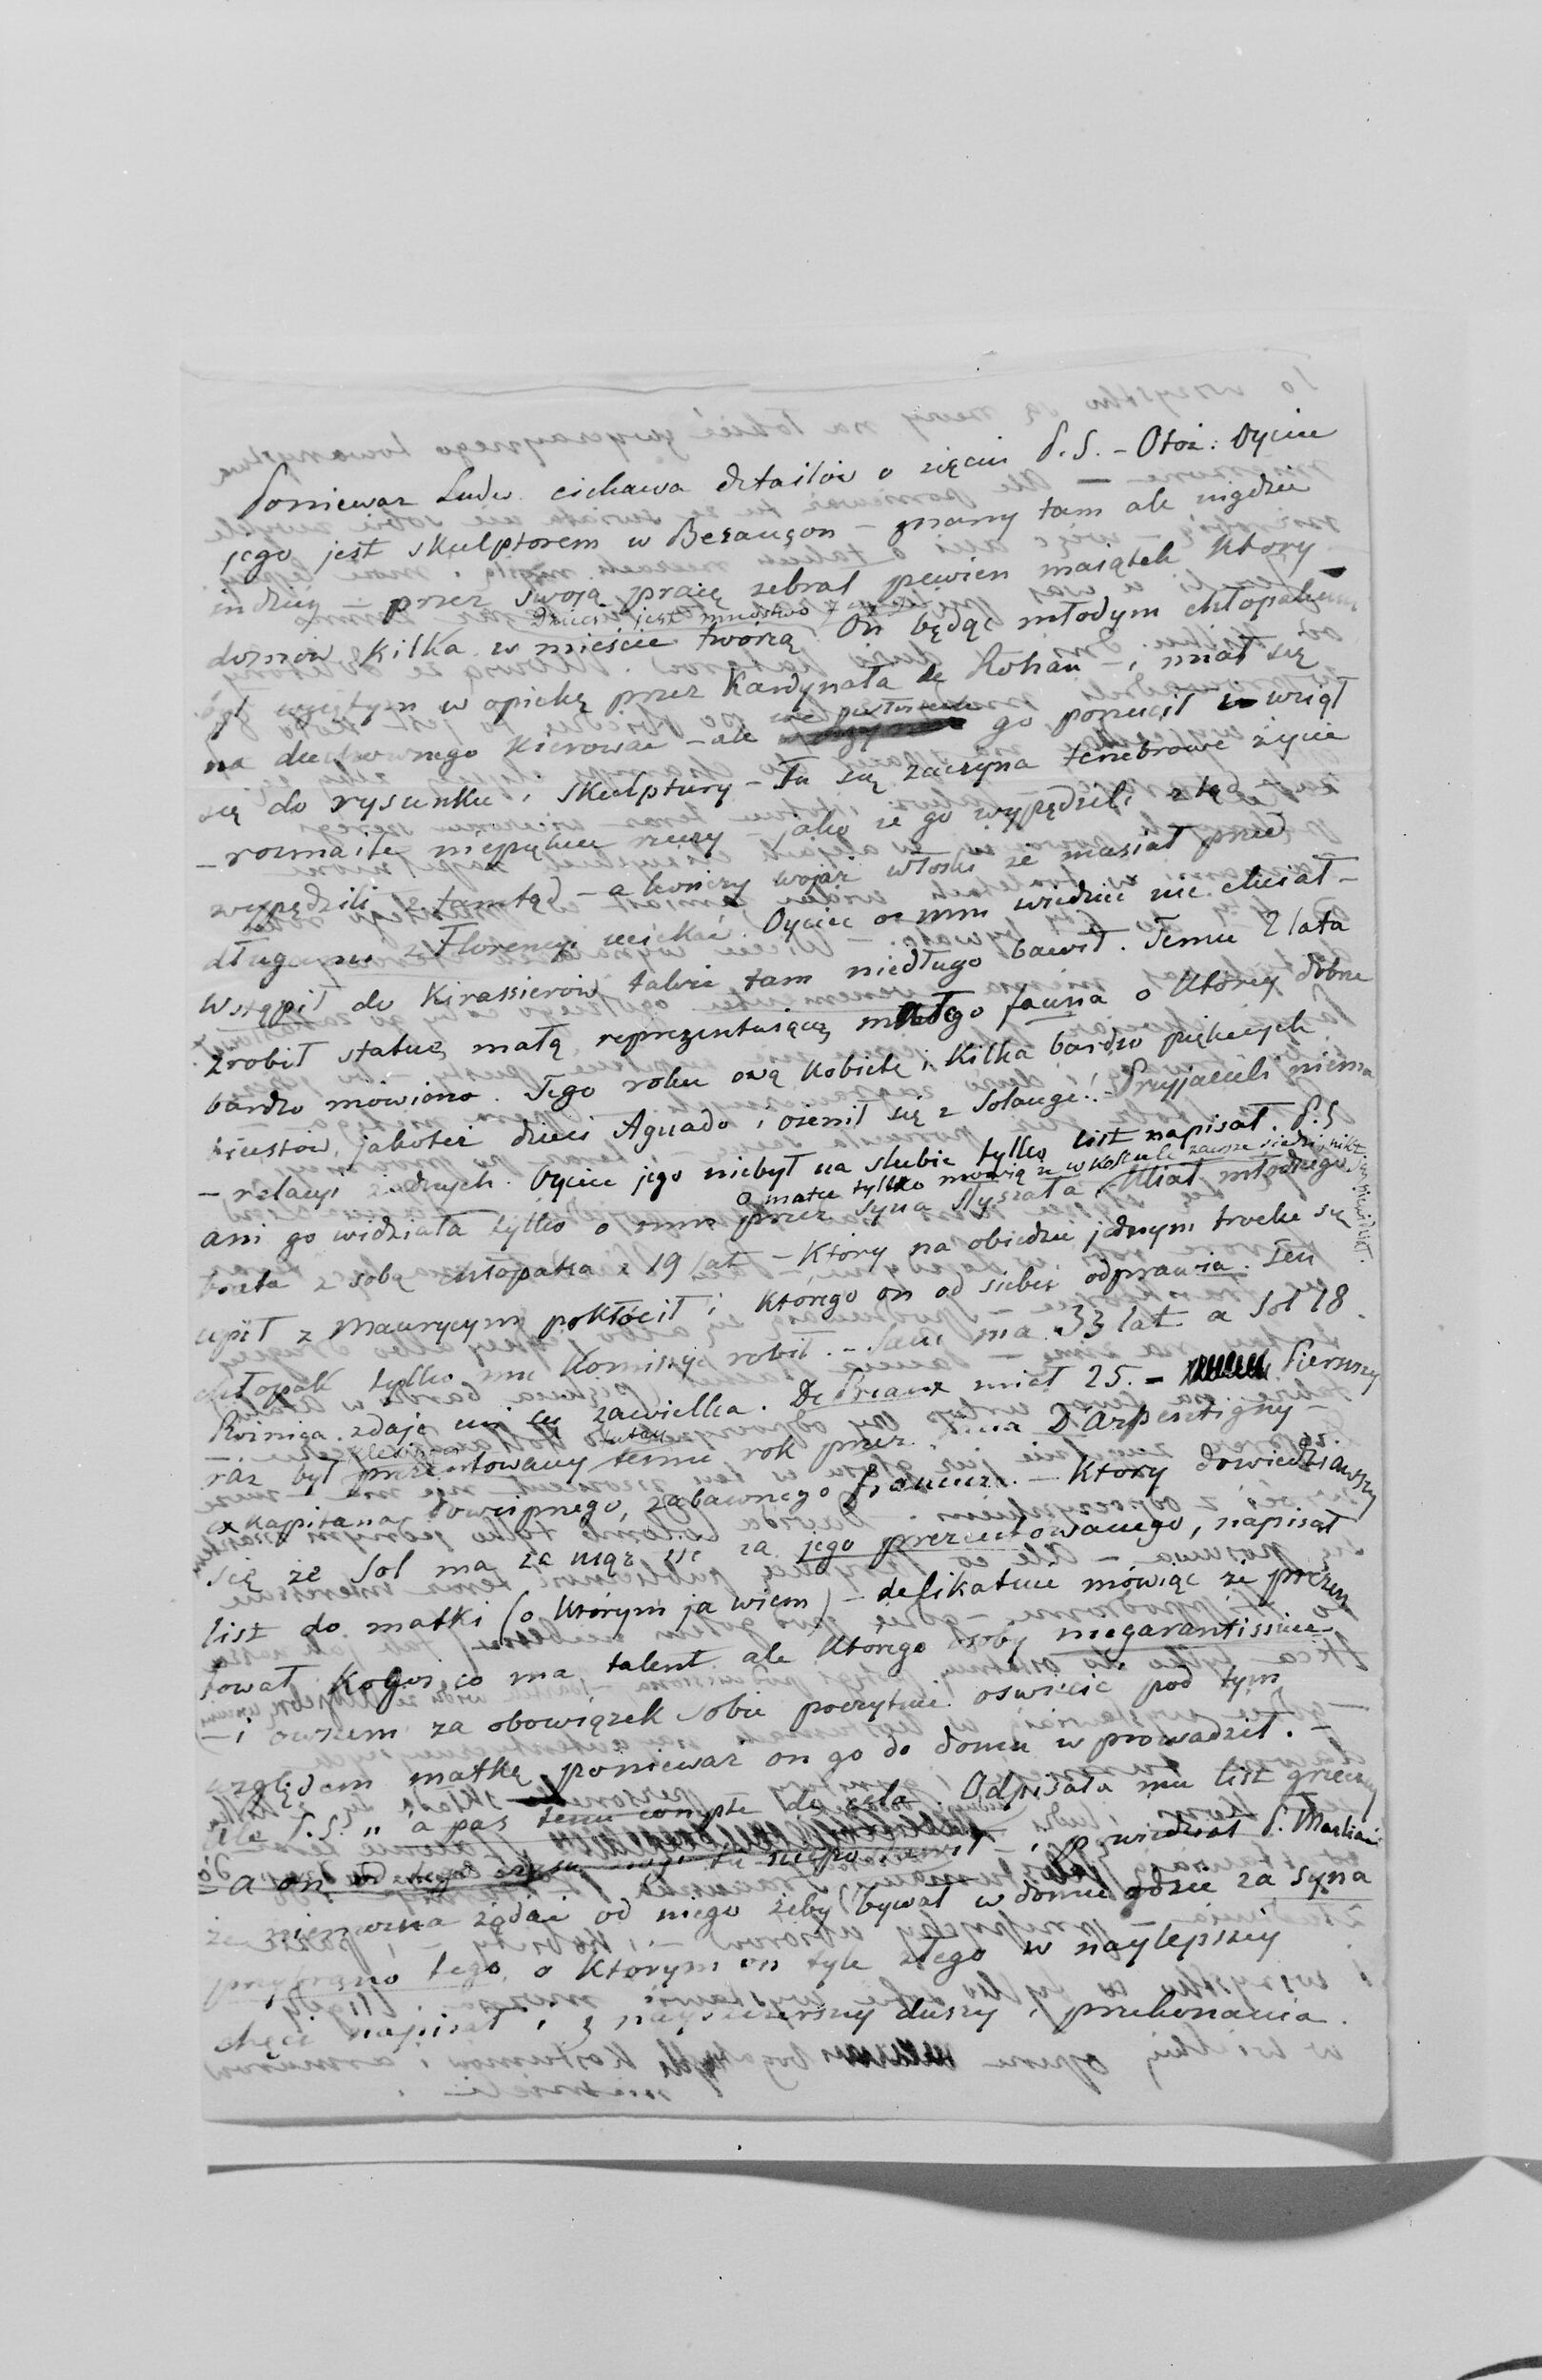 Ponieważ Ludw. ciekawa detailów o zięciu P. S. – Otóż: Oyciec
jego jest skulptorem w Besançon – znany tam ale nigdzie
indziej – przez swoją pracę zebrał pewien maiątek który
dzieci jest mnóstwo
domów kilka w mieście tworzą. On będąc młodym chłopakiem
wziętym w opiekę przez Kardynała de Rohan – i miał się
na duchownego kierować – ale go porzucił wziął
się do rysunku i skulptury – Tu się zaczyna tenebrowe życie
– rozmaite niepiękne rzeczy – jako że go wypędzili ztąd
wypędzili z tamtąd – a kończy wojaż włoski że musiał przed
długami z Florencyi uciekać. Oyciec o nim wiedzieć nie chciał –
Wstąpił do Kirassierów także tam niedługo bawił. Temu 2 lata
zrobił statuę małą reprezentuiącą małego fauna o którey dobrze
bardzo mówiono. Tego roku ową kobietę i kilka bardzo pięknych
biustów, jakoteż dzieci Aguado i ożenił się z Solange!. Przyjacieli niema
– relacyi żadnych. Oyciec jego niebył na ślubie tylko list napisał. P. S
o matce tylko mówią że w kościele zawsze siedzi, nikt
jej niewidział.
ani go widziała tylko o nim przez syna słyszała. Miał młodego
brata z sobą chłopaka z 19 lat – który na obiedzie jednym trochę się
upił z Maurycym pokłócił i którego on od siebie odprawia. Ten
chłopak tylko mu Komissyje robił. – Sam ma 33 lat a Sol 18.
Różnica zdaje mi się zawielka. De Preaux miał 25. – Pierwszy
Clésinger tutay
raz był prezentowany temu rok przez Pana D'Arpentigny –
ex kapitana dowcipnego, zabawnego francuza. – Który dowiedziawszy
się że Sol ma za mąż iść za jego prezentowanego, napisał
list do matki (o którym ja wiem) – delikatnie mówiąc że prezen
tował kogoś co ma talent ale którego osoby niegarantissuie
– i owszem za obowiązek sobie poczytuie oświecić pod tym
względem matkę ponieważ on go do domu wprowadził. –
Ale P. S. „a pas tenu compte de cela. Odpisała mu list grzeczny
– a on od tego czasu nogi tu niepostawił i powiedział P. Marliani
że niemożna żądać od niego żeby bywał w domu gdzie za syna
przybrano tego, o którym on tyle złego w naylepszey
chęci napisał i z nayszczerszey duszy i przekonania.